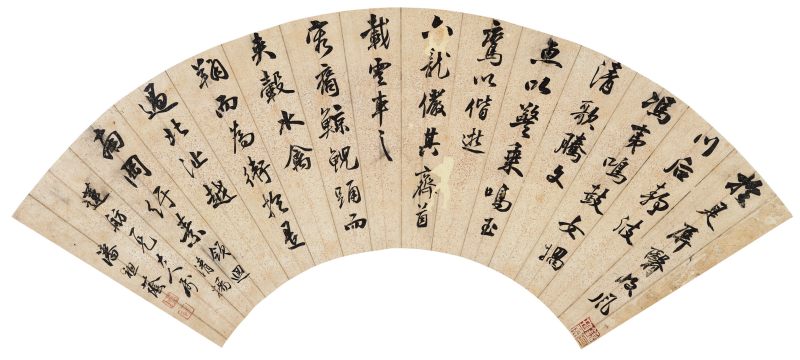 於是屏翳收風
川后靜波
馮夷鳴鼓女媧
清歌騰文
魚以警乘鳴玉
鸞以偕逝
六龍儼其齊首
載雲車之
容裔鯨鯢踊而
夾轂水禽
翔而為衛於是
過北沚越
南岡紆素領迴清揚
蓮舫一兄大人属
潘祖蔭